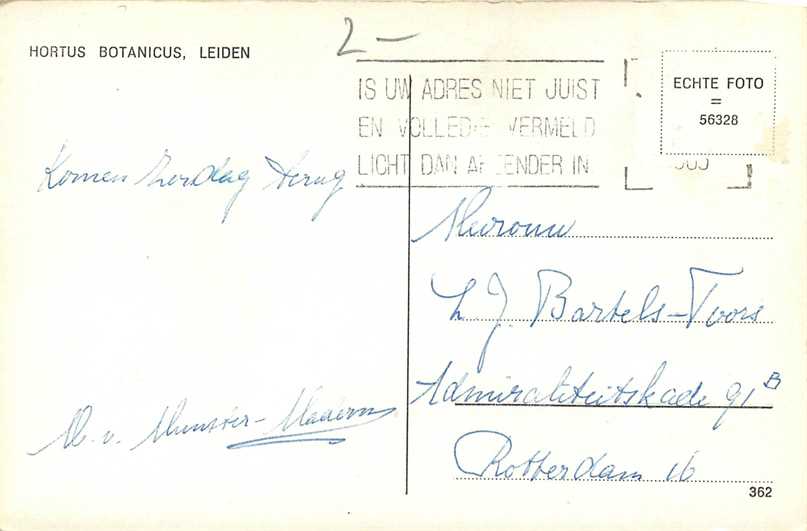 2-
HORTUS BOTANICUS, LEIDEN
IS UW ADRES NIET JUIST
EN VOLLEDIG VERMELD
LICHT DAN AFZENDER IN
ECHTE FOTO
=
56328
Komen Zondag terug
M. v. Munster-
Mevrouw
L J. Bartels-Toors
Admiraliteitskade 91B
Rotterdam 16
362